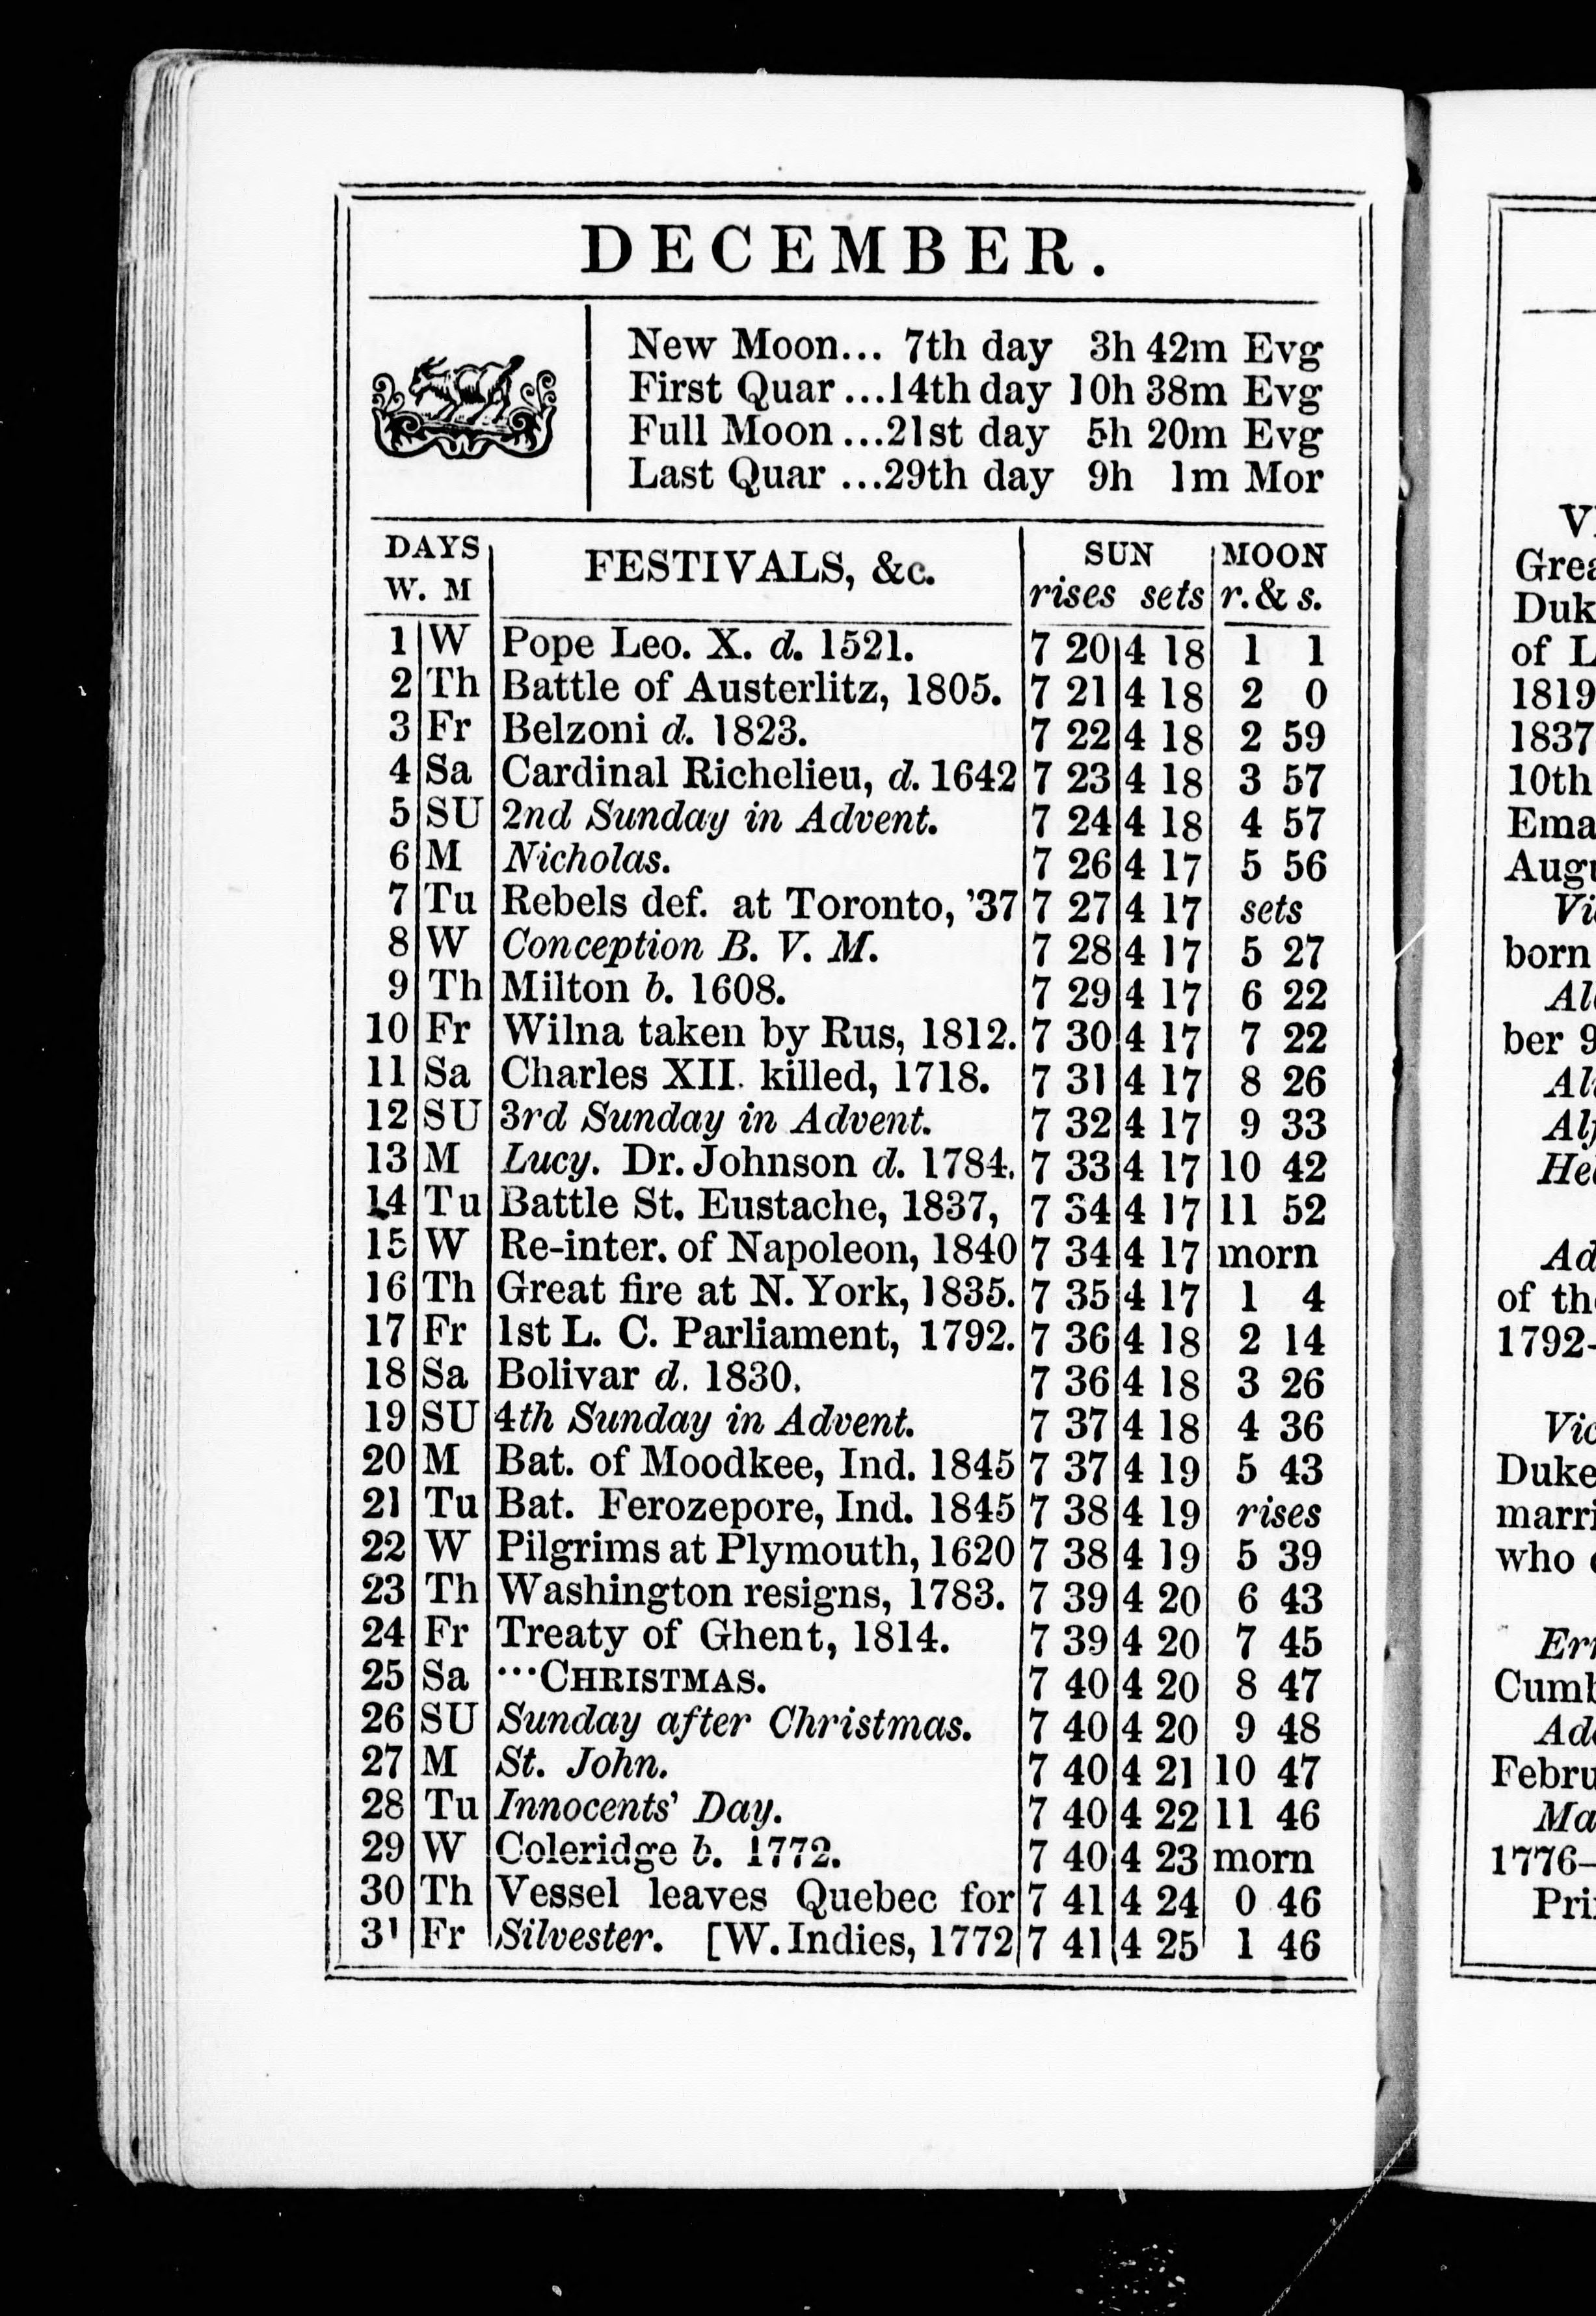 DECEMBER.
New Moon... 7th day 3h 42m Evg
First Quar ...14th day 10h 38m Evg
Full Moon ...21st day 5h 20m Evg
Last Quar ...29th day 9h 1m Mor
DAYS FESTIVALS, &c. SUN MOON
W. M rises sets r. & s.
1 W Pope Leo. X. d. 1521. 7 20 4 18 1 1
2 Th Battle of Austerlitz, 1805. 7 21 4 18 2 0
3 Fr Belzoni d. 1823. 7 22 4 18 2 59
4 Sa Cardinal Richelieu, d. 1642 7 23 4 18 3 57
5 SU 2nd Sunday in Advent. 7 24 4 18 4 57
6 M Nicholas. 7 26 4 17 5 56
7 Tu Rebels def. at Toronto, '37 7 27 4 17 sets
8 W Conception B. V. M. 7 28 4 17 5 27
9 Th Milton b. 1608. 7 29 4 17 6 22
10 Fr Wilna taken by Rus, 1812. 7 30 4 17 7 22
11 Sa Charles XII. killed, 1718. 7 31 4 17 8 26
12 SU 3rd Sunday in Advent. 7 32 4 17 9 33
13 M Lucy. Dr. Johnson d. 1784. 7 33 4 17 10 42
14 Tu Battle St. Eustache, 1837, 7 34 4 17 11 52
15 W Re-inter. of Napoleon, 1840 7 34 4 17 morn
16 Th Great fire at N. York, 1835. 7 35 4 17 1 4
17 Fr 1st L. C. Parliament, 1792. 7 36 4 18 2 14
18 Sa Bolivar d. 1830. 7 36 4 18 3 26
19 SU 4th Sunday in Advent. 7 37 4 18 4 36
20 M Bat. of Moodkee, Ind. 1845 7 37 4 19 5 43
21 Tu Bat. Ferozepore, Ind. 1845 7 38 4 19 rises
22 W Pilgrims at Plymouth, 1620 7 38 4 19 5 39
23 Th Washington resigns, 1783. 7 39 4 20 6 43
24 Fr Treaty of Ghent, 1814. 7 39 4 20 7 45
25 Sa ...CHRISTMAS. 7 40 4 20 8 47
26 SU Sunday after Christmas. 7 40 4 20 9 48
27 M St. John. 7 40 4 21 10 47
28 Tu Innocents' Day. 7 40 4 22 11 46
29 W Coleridge b. 1772. 7 40 4 23 morn
30 Th Vessel leaves Quebec for 7 41 4 24 0 46
31 Fr Silvester. [W. Indies, 1772 7 41 4 25 1 46
of
1819
1837
10th
born
ber 9
1792-
who
1776-